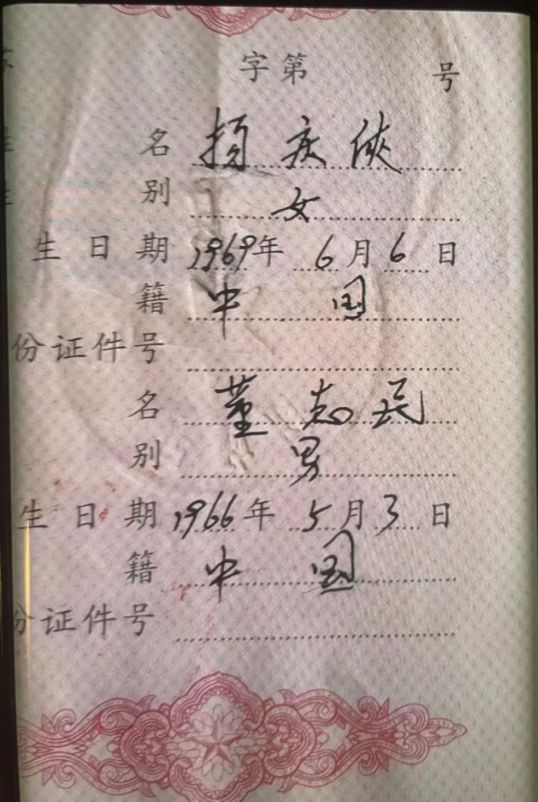 字第 号
名 庆侠
别 女
生日期 1969年6月6日
籍 中国
份证件号
名 董志民
别 男
生日期 1966年5月3日
籍 中国
份证件号